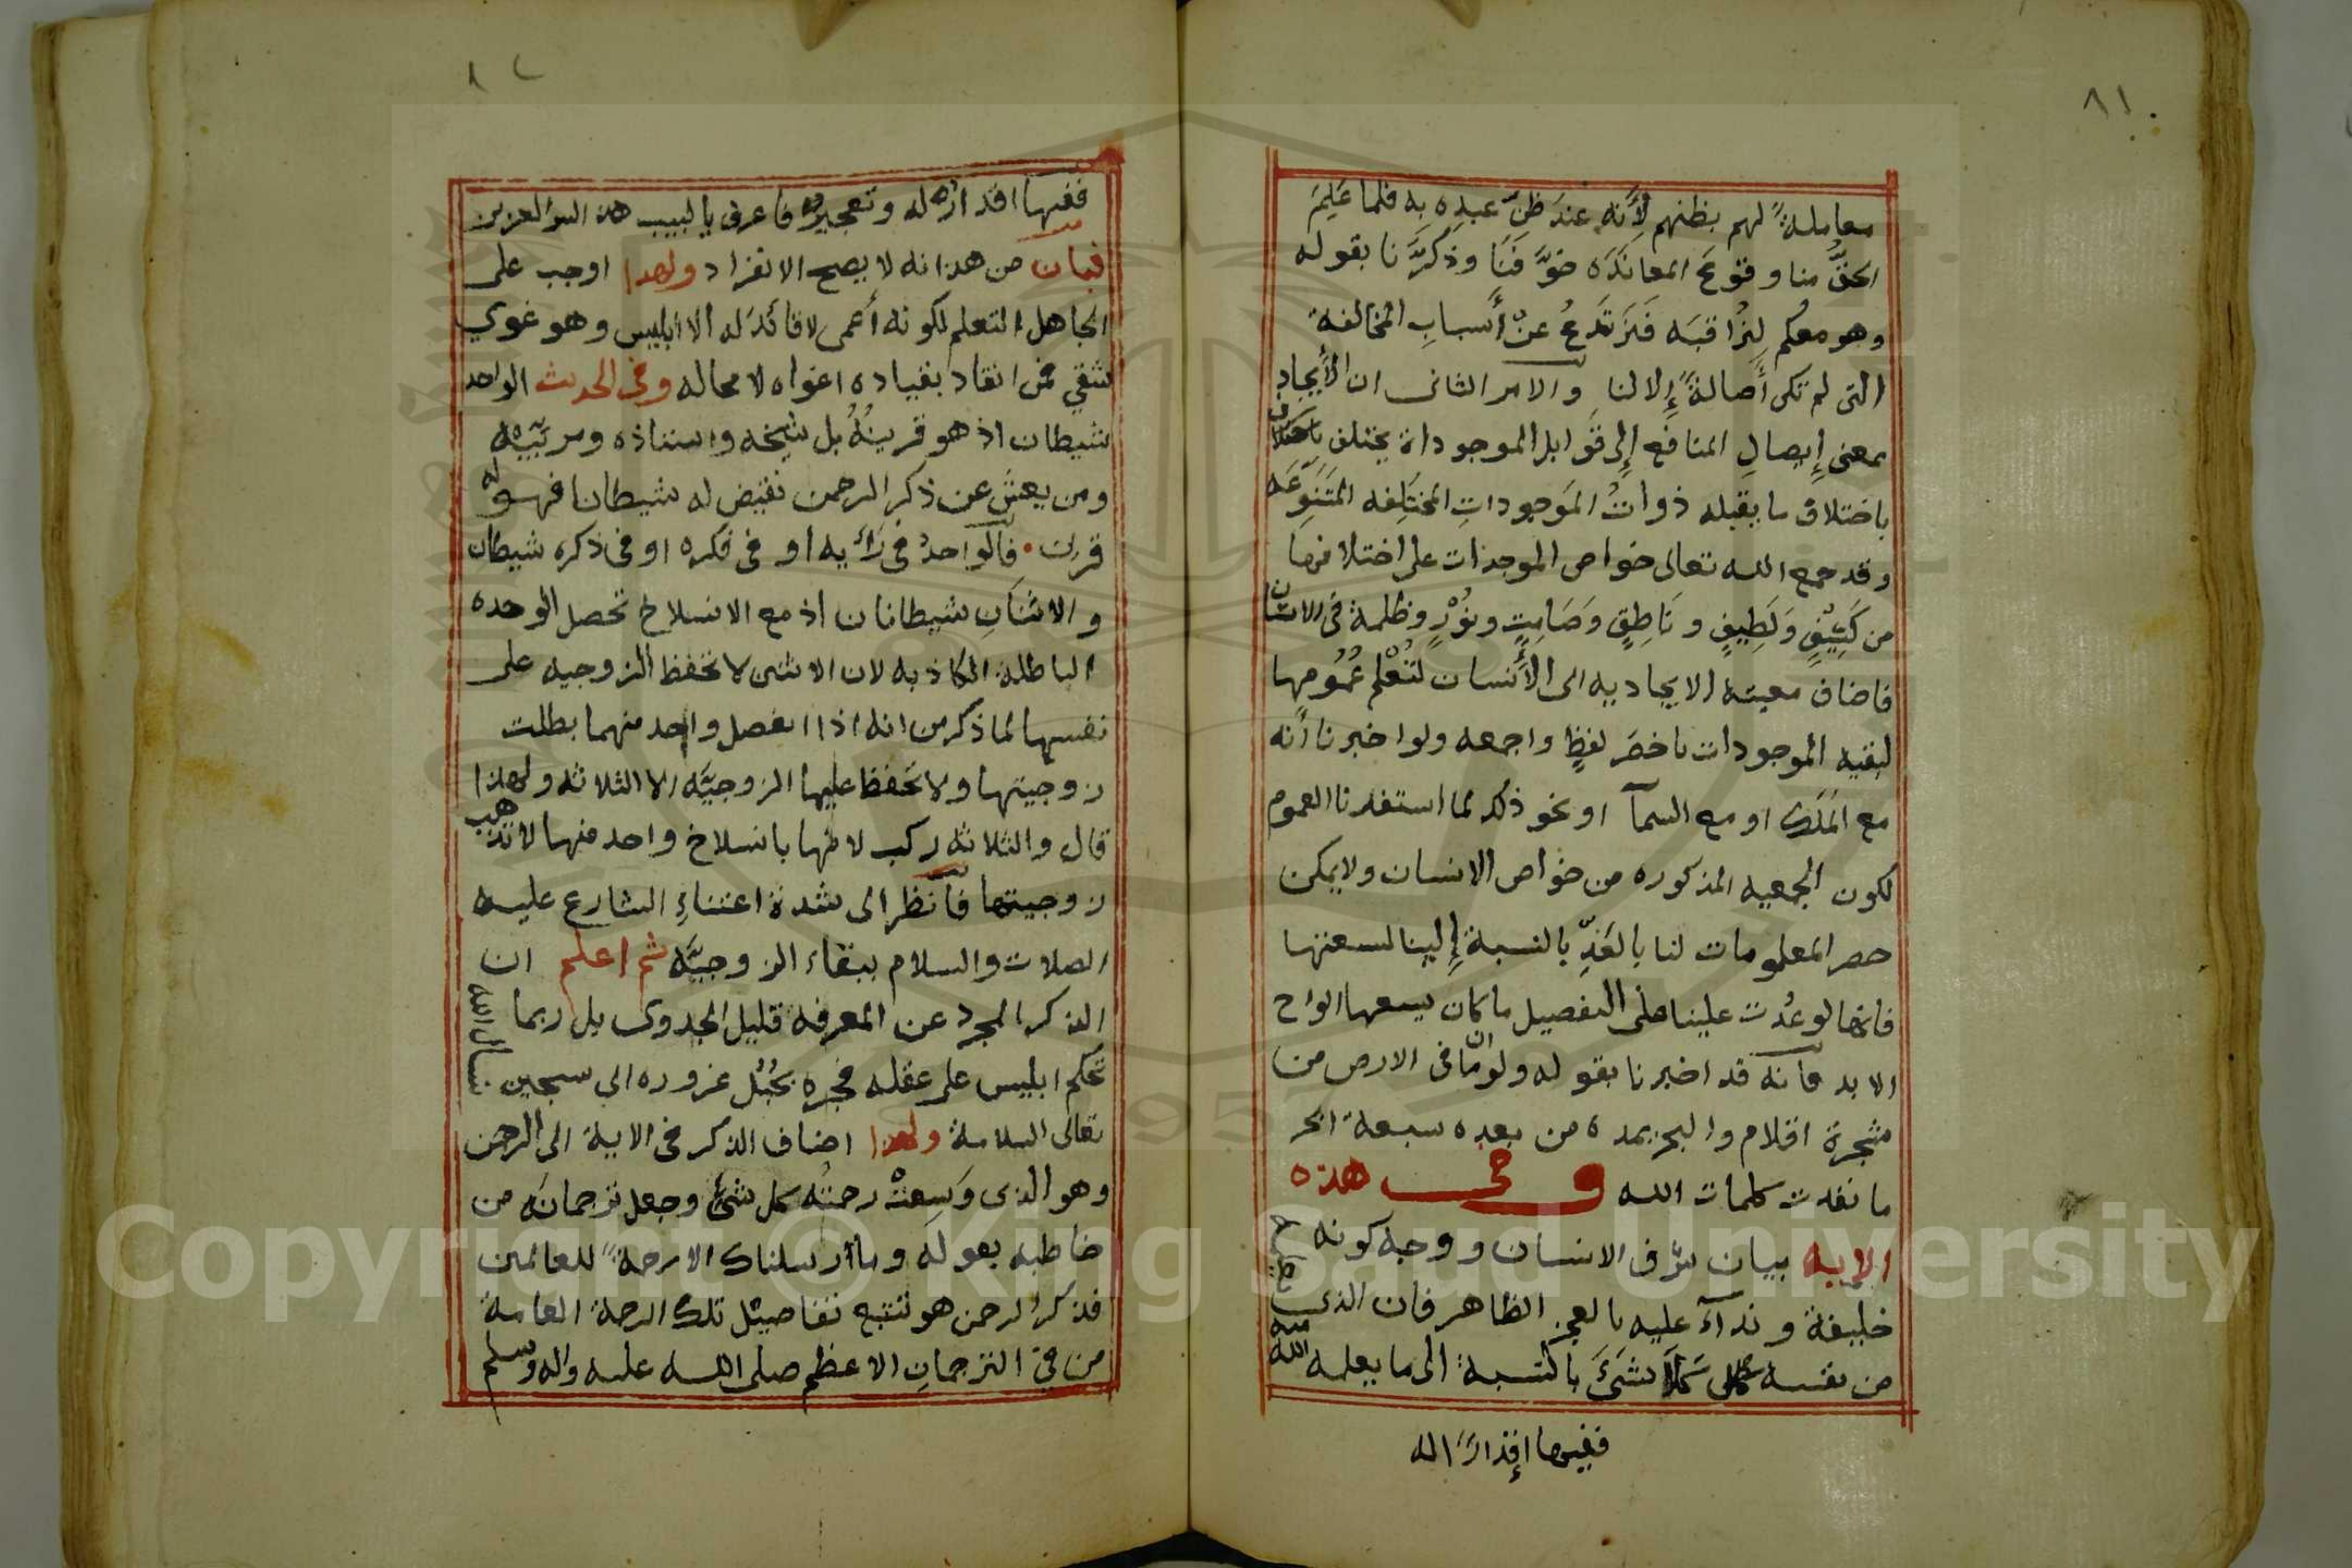 ٨١
معاملةً لهم بظنهم لأنه عند ظنّ عبده به فلما عَلِمَ
الحقُّ منا وقوع المعاندَه خوّفَنَا وذكَّرَنا بقوله
وهو معكم لِنُراقبَه فَنَرتَدعُ عنْ أسبابِ المخالفة
التى لم تكن أصالةً إلا لنا والامر الثانى ان الأيجاد
بمعنى إيصالِ المنافع إلى قوابل الموجودات يختلف
باختلاف ما يقبله ذواتُ الموجوداتِ المختلِفه المتنوّعَه
وقد جمع الله تعالى خواص الموجدات على اختلافها
من كَثِيْفٍ وَلَطِيفٍ ونَاطِقٍ وَصَامِتٍ ونُوْرٍ وظلمة فى الانسان
فاضاف معيته الايجاديه الى الأنسان لتُعْلم عُمُومها
لبقيه الموجودات باخصَر لفظٍ واجمعه ولو اخبرنا أنه
مع المَلَك او مع السمآ او نحو ذلك لما استفدنا العموم
لكون الجمعيه المذكوره من خواص الانسان ولا يمكن
حصر المعلومات لنا بالعَدِّ بالنسبة إلينا لسعتها
فانها لو عُدت علينا على التفصيل ما كان يسعها الواح
الابد فانه قد اخبرنا بقوله ولو ان ما فى الارض من
شجرة اقلام والبحر يمده من بعده سبعة ابحر
ما نفدت كلمات الله وفى هذه
الايه بيان شرف الانسان ووجه كونه
خليفة وندآءً عليه بالعجز الظاهر فان الذى
من نفسه كلا شَىءَ بالنسبة الى ما يعلمه الله
ففيها إقدارًا له
٨٢
ففيها اقدارٌ له وتعجيزٌ فاعرف يا لبيب هذا السر العزيز
فبان من هذا انه لا يصح الانفراد ولهذا اوجب على
الجاهل التعلم لكونه أعمى لا قائدَ له الا ابليس وهو غوي
شقي فمن انقاد بقياده اغواه لا محاله وفى الحديث الواحد
شيطان اذ هو قرينُهُ بل شيخه واستاذه ومربّيه
ومن يعشُ عن ذكر الرحمن نقيض له شيطانا فهو له
قرين فالواحدُ فى رَأيه او فى فكره او فى ذكره شيطان
والاثنانِ شيطانان اذ مع الانسلاخ تحصل الوحده
الباطلة الكاذبه لان الاثنين لا تحفظ الزوجيه على
نفسها لما ذكر من انه اذا انفصل واحد منهما بطلت
زوجيتها ولا تحفظ عليها الزوجيَّه الا الثلاثه ولهذا
قال والثلاثه ركب لانها بانسلاخ واحد منها لا تذهب
زوجيتها فانظر الى شدة اعتناءِ الشارع عليه
الصلات والسلام ببقاء الزوجيَّه ثم اعلم ان
الذكر المجرد عن المعرفه قليل الجدوى بل ربما
تحكم ابليس على عقله فجره بحُبُل غروره الى سجين نسأل الله
تعالى السلامة ولهذا اضاف الذكر فى الاية الى الرحمن
وهو الذى وَسِعتْ رحمتُه كل شئ وجعل ترجمانَه من
خاطبه بقوله وما أرسلناك الا رحمةً للعالمين
فذكرُ الرحمن هو تتبع تفاصيْل تلك الرحمة العامة
من فىّ الترجمانِ الاعظم صلى الله عليه واله وسلم
Copyright © King Saud University
1957